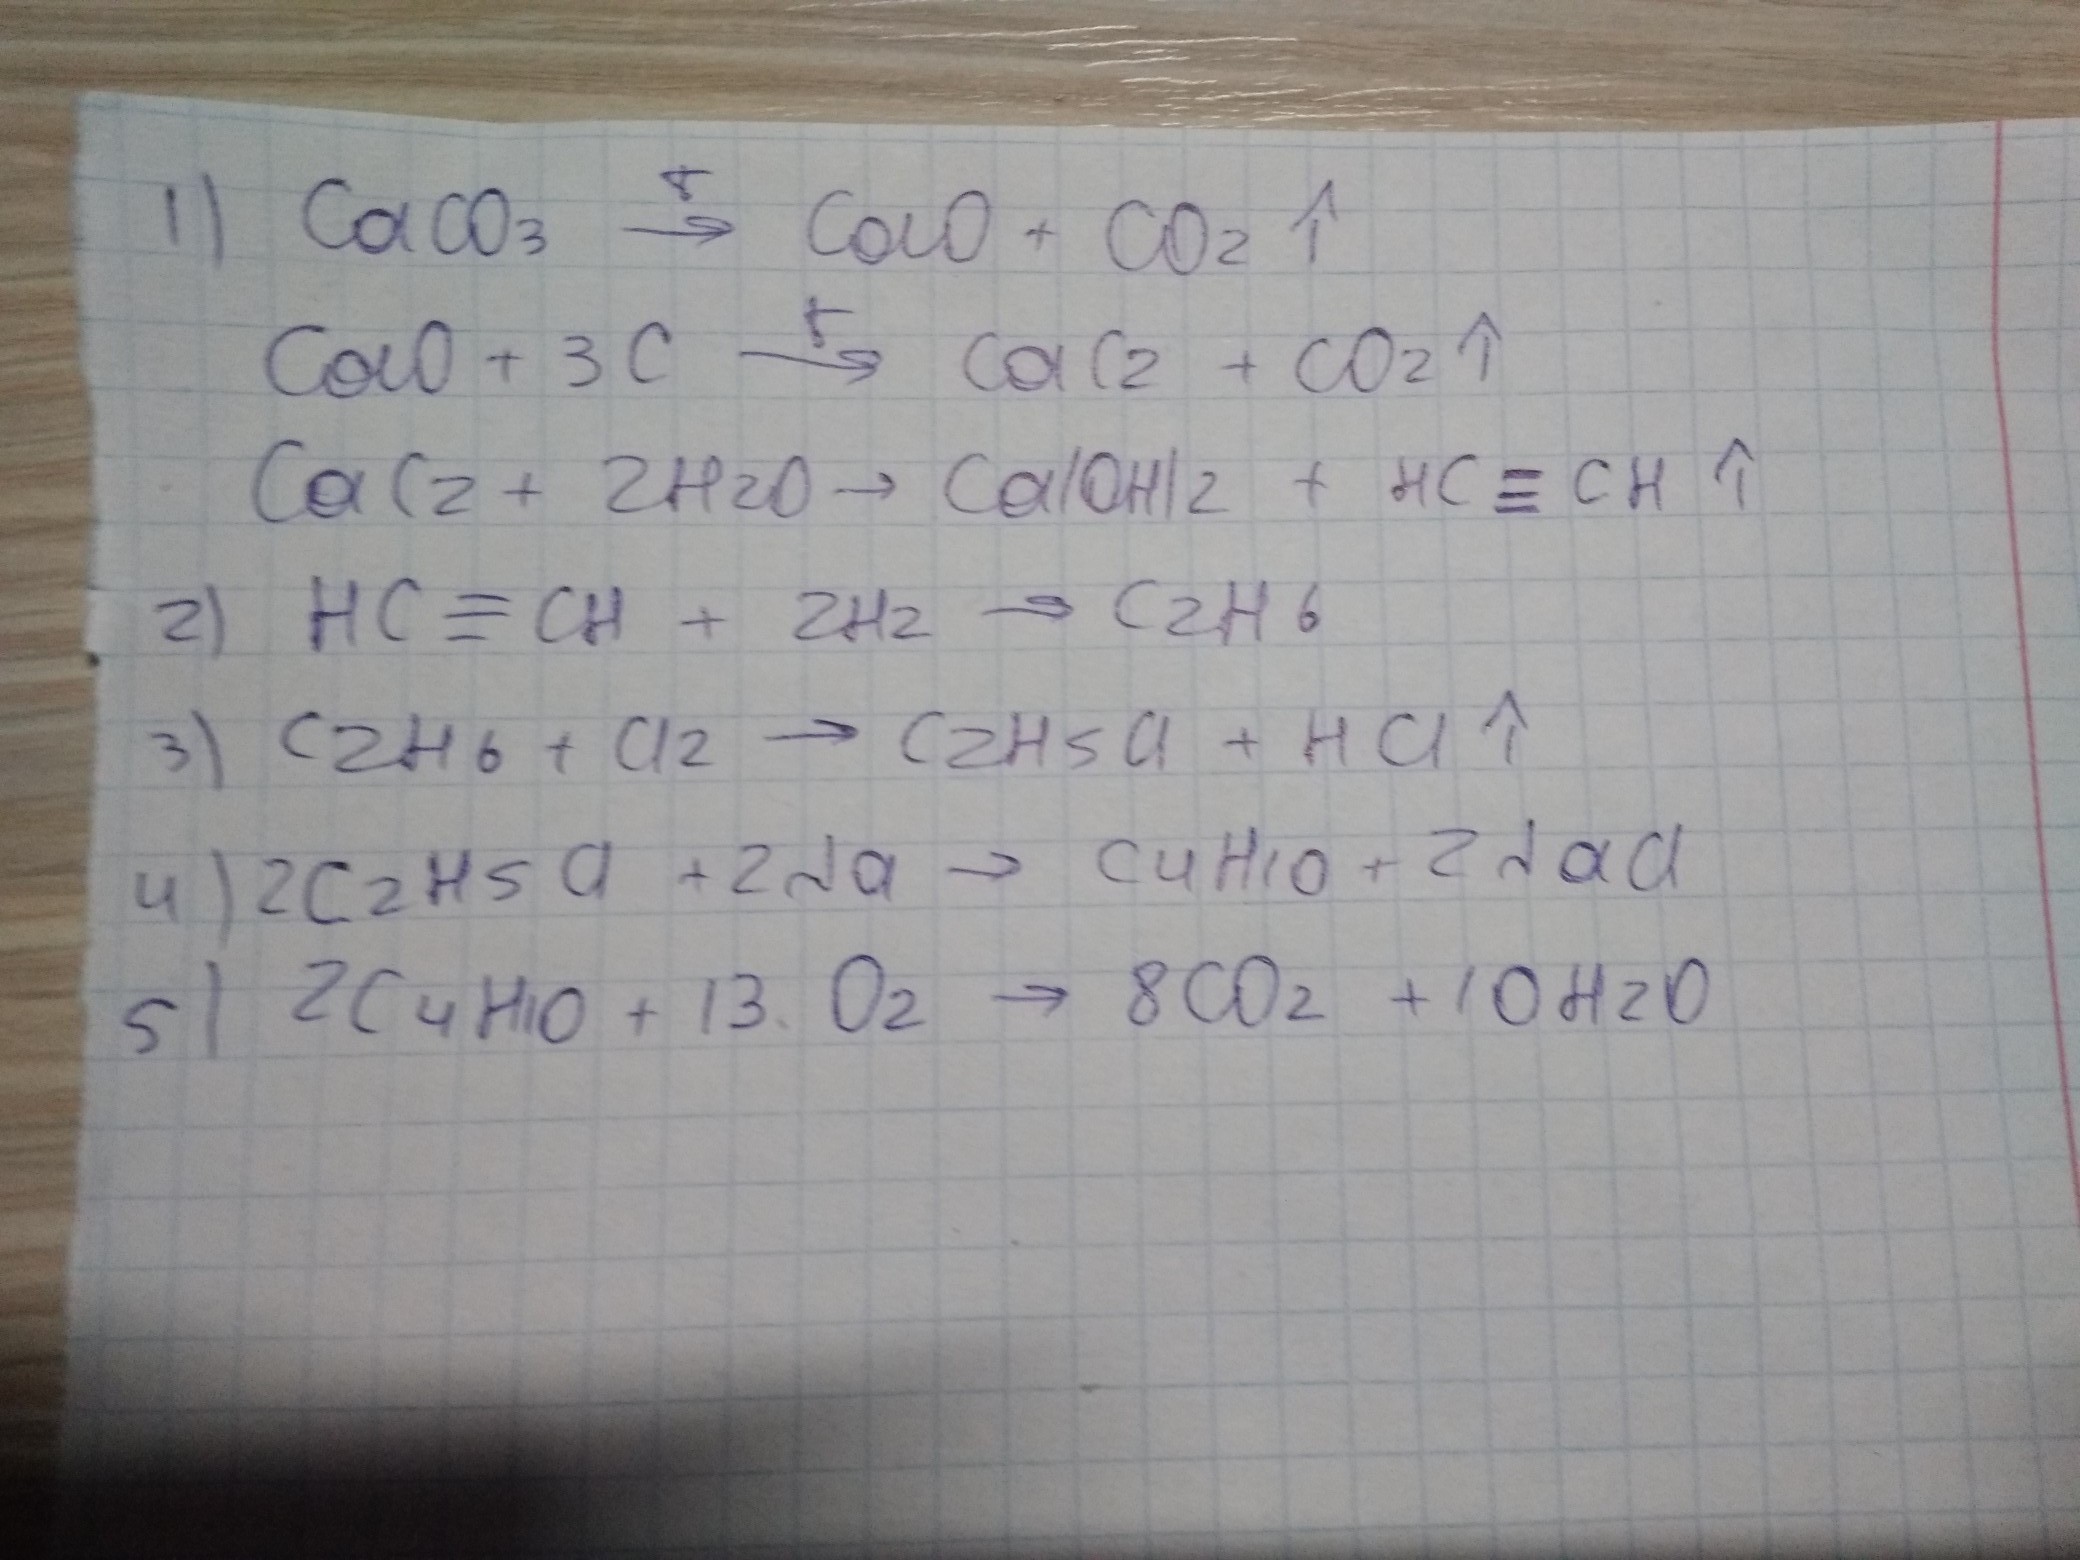 1) CaCO3 t→ CaO + CO2 ↑
CaO + 3C t→ CaC2 + CO2 ↑
CaC2 + 2H2O → Ca(OH)2 + HC≡CH ↑
2) HC≡CH + 2H2 → C2H6
3) C2H6 + Cl2 → C2H5Cl + HCl ↑
4) 2C2H5Cl + 2Na → C4H10 + 2NaCl
5) 2C4H10 + 13 O2 → 8CO2 + 10H2O